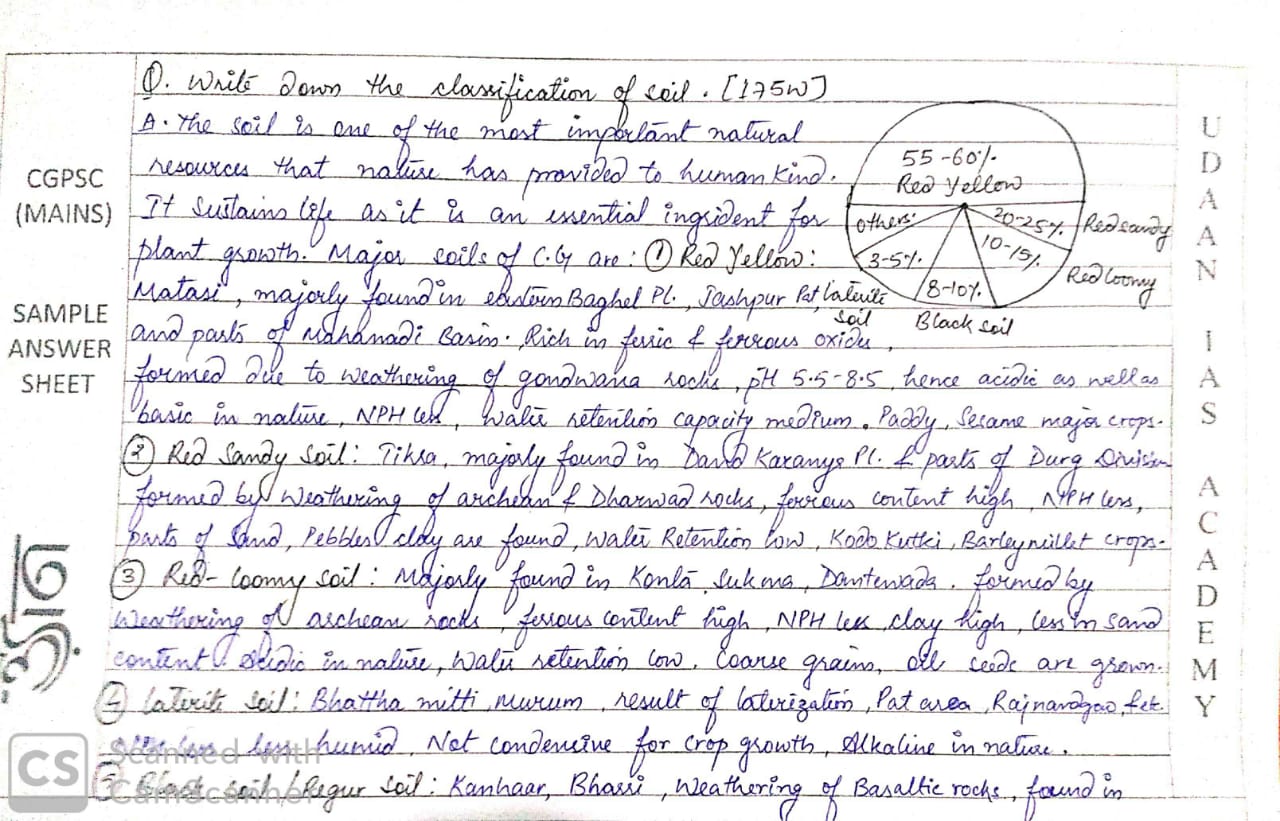 Q. Write down the classification of soil. [175W]
A. The soil is one of the most important natural
resources that nature has provided to human kind.
It sustains life as it is an essential ingrident for
plant growth. Major soils of C.G are: ① Red Yellow:
Matasi, majorly found in eastern Baghel Pl., Jashpur Pat,
and parts of Mahanadi Basin. Rich in ferric & ferrous oxides,
formed due to weathering of gondwana rocks, pH 5.5-8.5, hence acidic as well as
basic in nature, NPH less, water retention capacity medium. Paddy, Sesame major crops.
② Red Sandy Soil: Tikra, majorly found in Dand Karanya Pl. & parts of Durg Division
formed by weathering of archean & Dharwad rocks, ferrous content high, NPH less,
parts of sand, Pebbles clay are found, water Retention low, Kodo Kutki, Barley millet crops.
③ Red-loomy soil: Majorly found in Konta, Sukma, Dantewada. formed by
weathering of archean rocks, ferrous content high, NPH less, clay high, less in sand
content. Acidic in nature, water retention low. Coarse grains, oil seeds are grown.
④ laterite soil: Bhattha mitti, murum, result of laterization, Pat area, Rajnandgao,
less humid, Not condencive for crop growth, Alkaline in nature.
Black soil / Regur soil: Kanhaar, Bharri, Weathering of Basaltic rocks, found in
55-60%.
Red Yellow
others:
20-25%.
Red sandy
3-5%.
10-15%.
Red loomy
8-10%.
laterite
soil
Black soil
CGPSC
(MAINS)
SAMPLE
ANSWER
SHEET
उड़ान
UDAAN IAS ACADEMY
CS
Scanned with
CamScanner